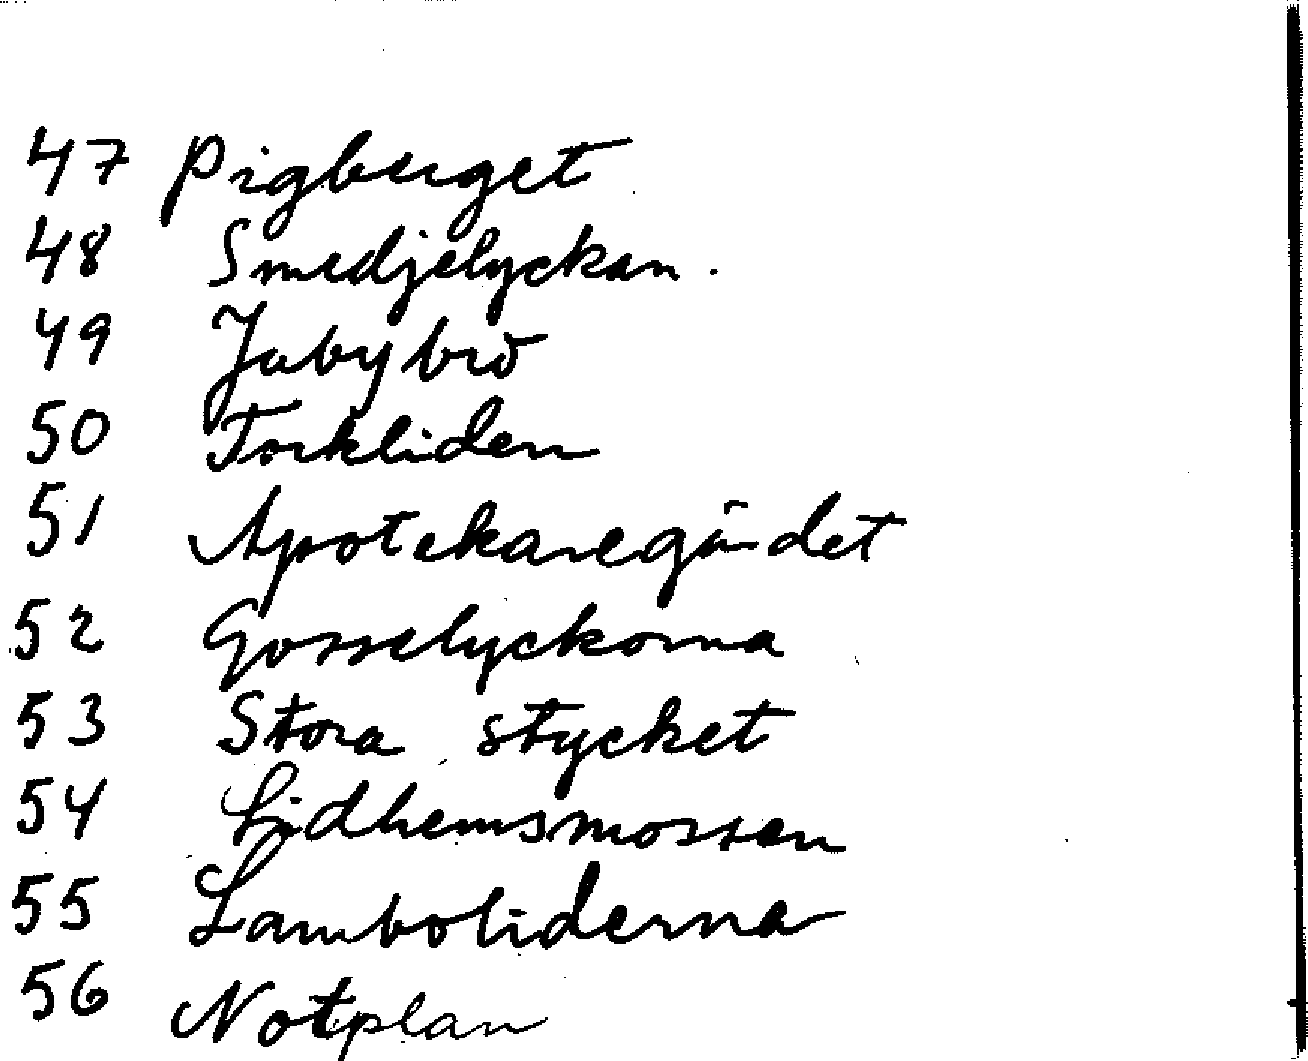 47 Pigberget
48 Smedjelyckan.
49 Jabybro
50 Torkliden
51 Apotekaregärdet
52 Gosselyckorna
53 Stora stycket
54 Lidhemsmossen
55 Lamboliderna
56 Notplan